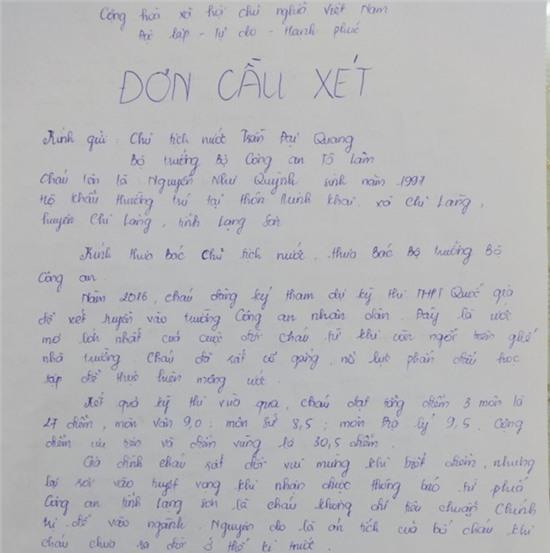 Cộng hòa xã hội chủ nghĩa Việt Nam
Độc lập - Tự do - Hạnh phúc
ĐƠN CẦU XÉT
Kính gửi : Chủ tịch nước Trần Đại Quang
Bộ trưởng Bộ Công an Tô Lâm
Cháu tên là Nguyễn Như Quỳnh sinh năm 1997
Hộ khẩu thường trú tại thôn Minh Khai, xã Chi Lăng,
huyện Chi Lăng, tỉnh Lạng Sơn
Kính thưa Bác Chủ tịch nước, thưa Bác Bộ trưởng Bộ
Công an.
Năm 2016, cháu đăng ký tham dự kỳ thi THPT Quốc gia
để xét tuyển vào trường Công an nhân dân. Đây là ước
mơ lớn nhất của cuộc đời cháu từ khi còn ngồi trên ghế
nhà trường. Cháu đã rất cố gắng, nỗ lực phấn đấu học
tập để thực hiện mong ước.
Kết quả kỳ thi vừa qua, cháu đạt tổng điểm 3 môn là
27 điểm, môn văn 9,0 ; môn sử 8,5 ; môn Địa lý 9,5. Cộng
điểm ưu tiên và điểm vùng là 30,5 điểm.
Gia đình cháu rất đỗi vui mừng khi biết điểm, nhưng
lại rơi vào tuyệt vọng khi nhận được thông báo từ phía
Công an tỉnh Lạng Sơn là cháu không đủ tiêu chuẩn Chính
trị để vào ngành. Nguyên do là án tích của bố cháu khi
cháu chưa ra đời ở thế kỉ trước.